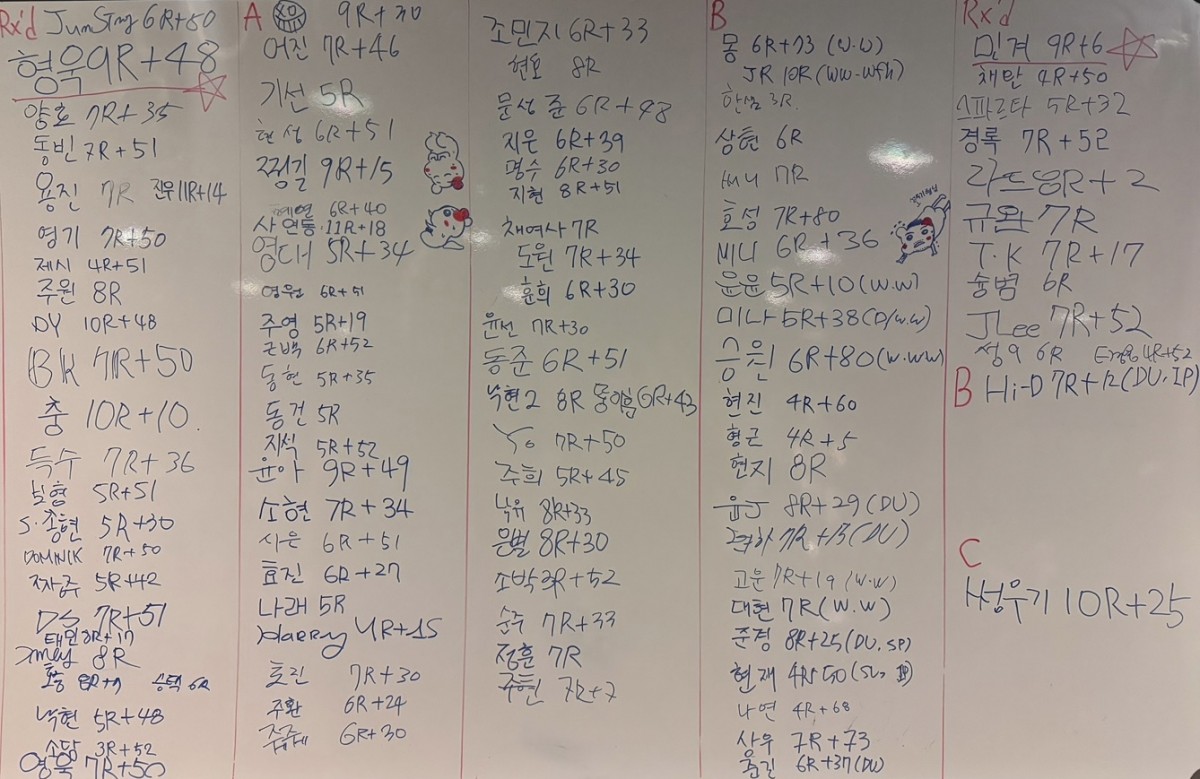 Rx'd JunSTmy 6R+50
형욱 9R+48
양호 7R+35
동빈 7R+51
용진 7R 진우 11R+14
영기 7R+50
제시 4R+51
주원 8R
DY 10R+48
BK 7R+50
충 10R+10.
득수 7R+36
보형 5R+51
S.종현 5R+30
DOMINIK 7R+50
짜금 5R+42
DS 7R+51
태민 8R+17
8R
승택 6R
낙현 5R+48
소담 3R+52
영욱 7R+50
A 9R+30
어진 7R+46
기선 5R
현성 6R+51
찡길 9R+15
예연 6R+40
사연동 11R+18
영대 5R+34
영원 6R+51
주영 5R+19
근백 6R+52
동현 5R+35
동건 5R
지석 5R+52
윤아 9R+49
소현 7R+34
시은 6R+51
효진 6R+27
나래 5R
Harry 4R+15
효진 7R+30
주환 6R+24
6R+30
조민지 6R+33
현호 8R
문성준 6R+48
지은 6R+39
명수 6R+30
지현 8R+51
채여사 7R
도원 7R+34
훈희 6R+30
윤선 7R+30
동준 6R+51
낙현2 8R 동이홉 6R+43
Yo 7R+50
주희 5R+45
낙유 8R+33
은별 8R+30
소박 3R+52
순주 7R+33
정훈 7R
주현 7R+7
B
몽 6R+73 (W.W)
JR 10R (WW-Wfh)
한샘 3R.
상현 6R
써니 7R
효성 7R+80
쎄니 6R+36
윤윤 5R+10 (W.W)
미나 5R+38 (D/W.W)
승원 6R+80 (W.WW)
현진 4R+60
형근 4R+5
현지 8R
윤J 8R+29 (DU)
7R+13 (DU)
고운 7R+19 (W.W)
대현 7R (W.W)
준경 8R+25 (DU, SP)
현재 4R+50
나연 4R+68
사우 7R+73
6R+37 (DU)
Rx'd
민겨 9R+6
채만 4R+50
스파르타 5R+32
경록 7R+52
라드 8R+2
규완 7R
T.K 7R+17
숭범 6R
JLee 7R+52
성9 6R 4R+52
B Hi-D 7R+12 (DU, IP)
C
써우기 10R+25